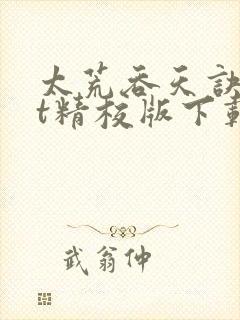 太荒吞天诀
t精校版下载
武翁仲